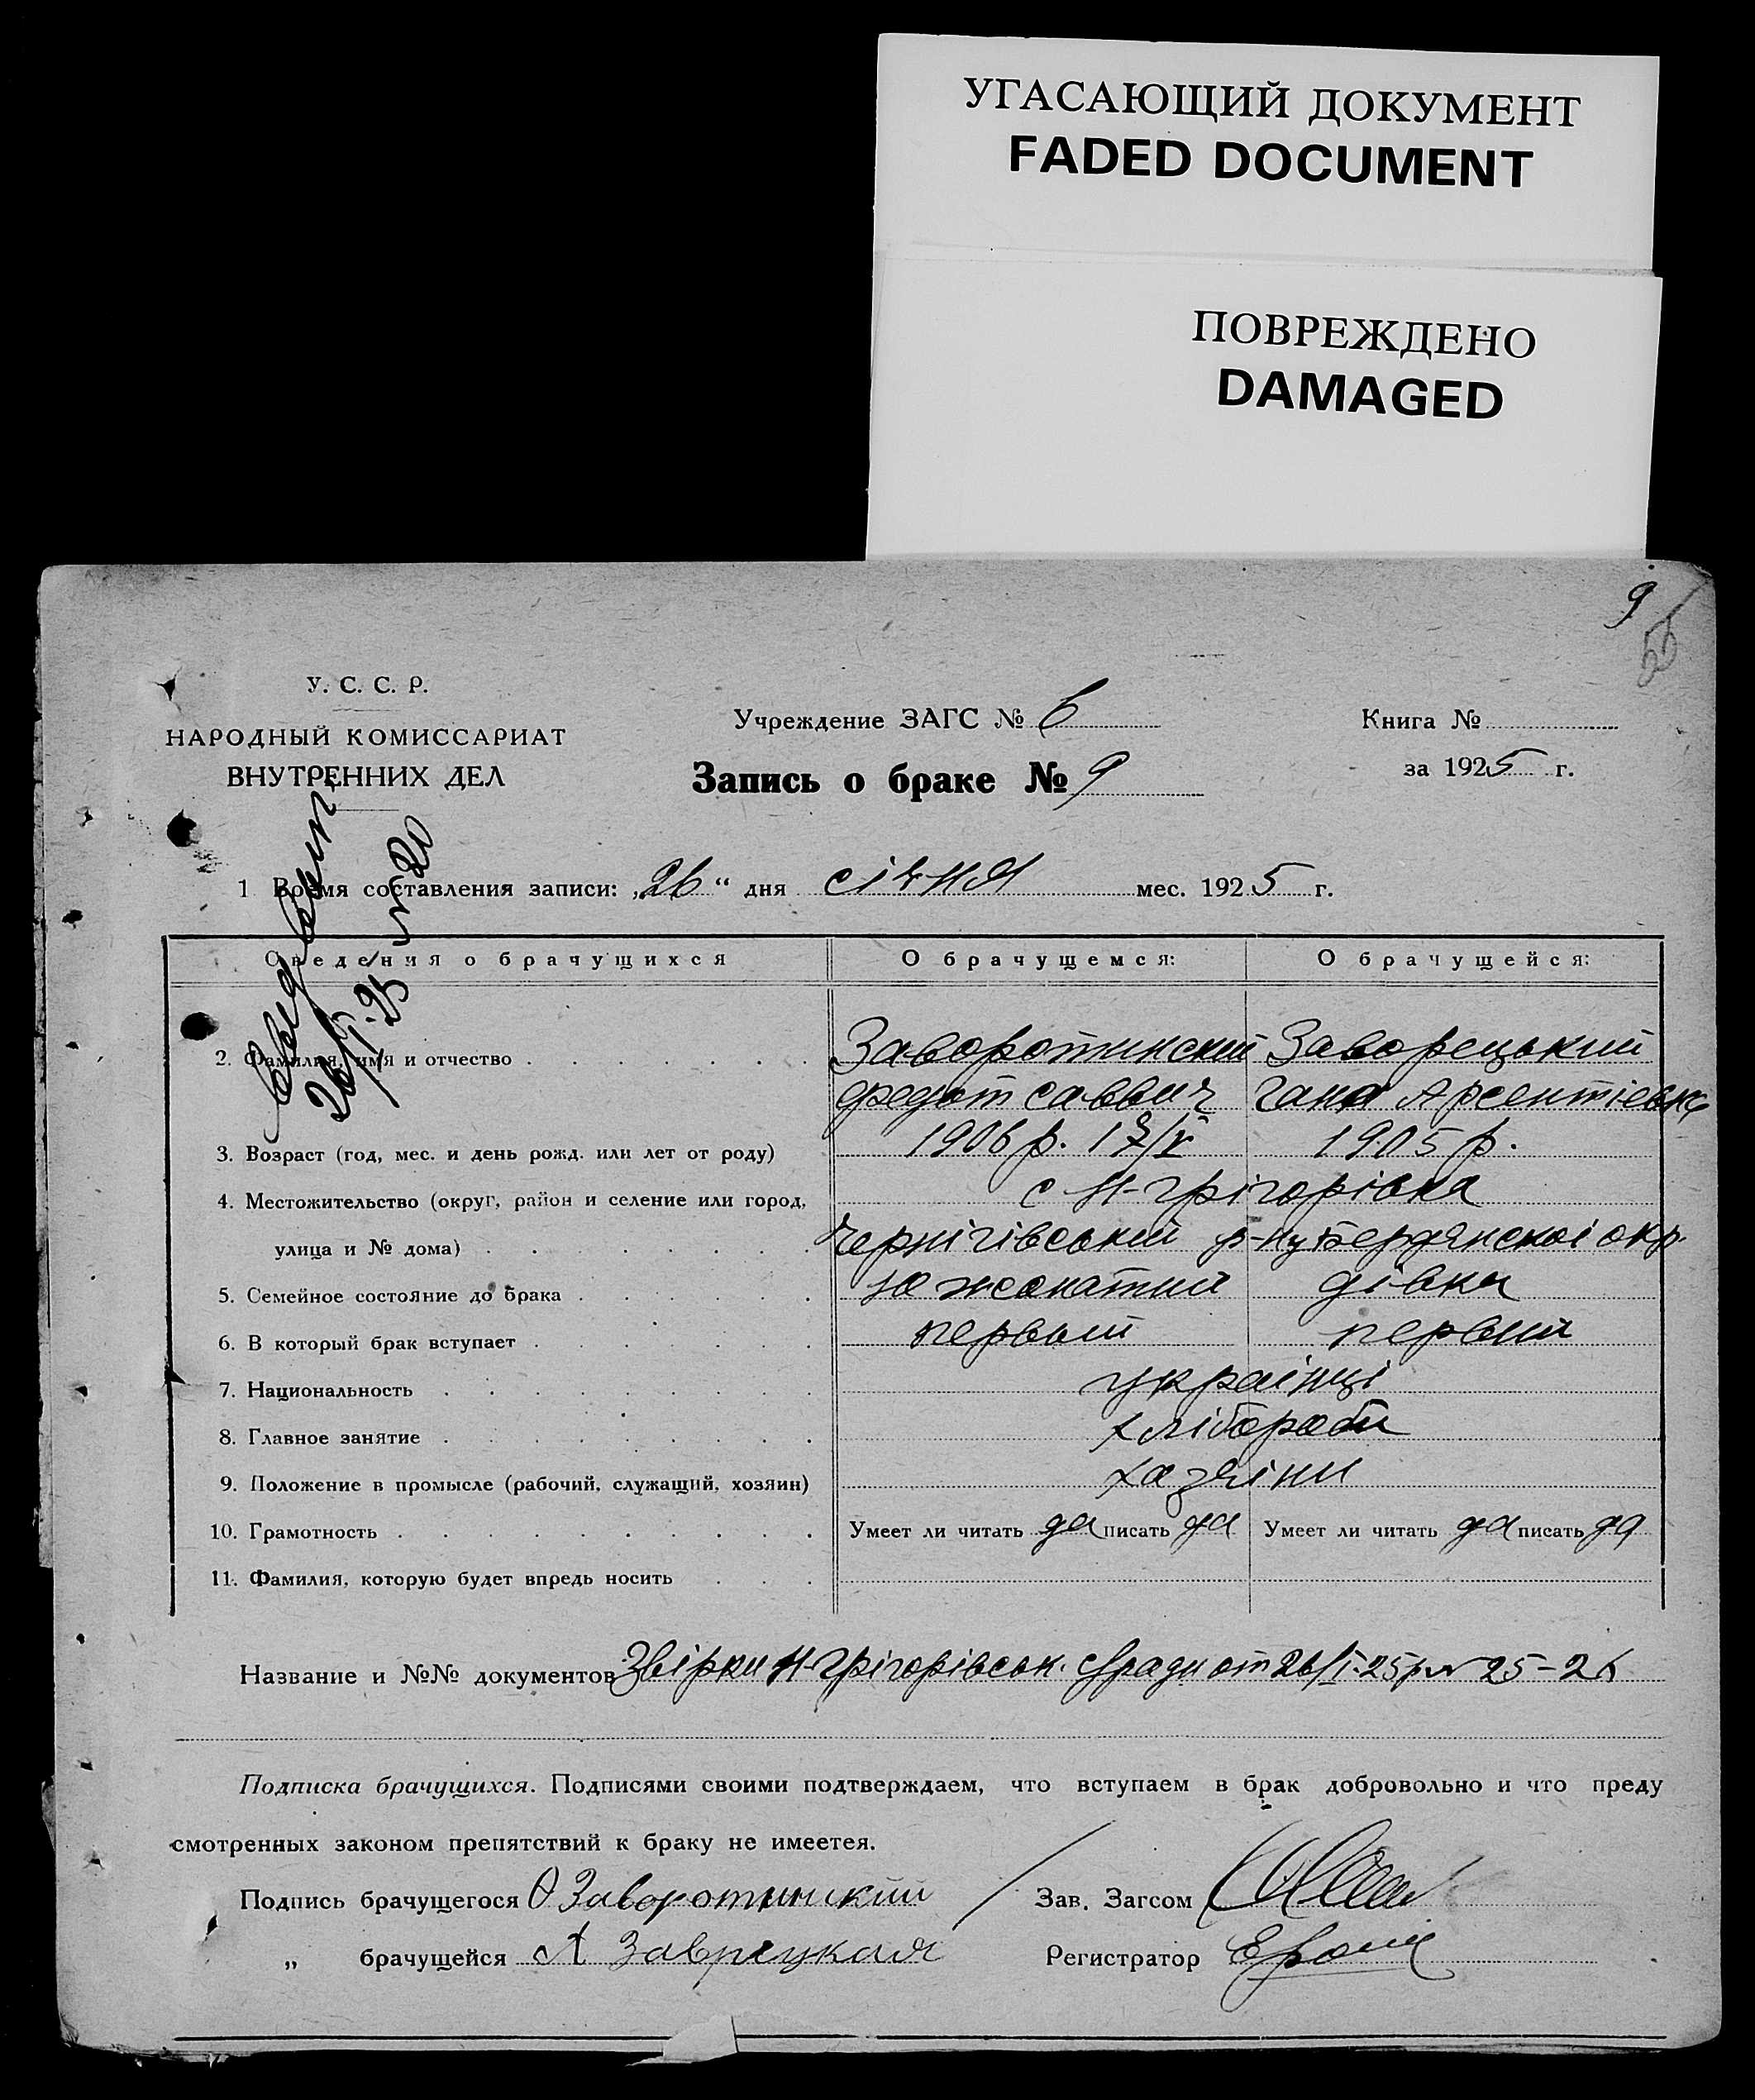 УГАСАЮЩИЙ ДОКУМЕНТ
FADED DOCUMENT
ПОВРЕЖДЕНО
DAMAGED
9
У. С. С. Р.
НАРОДНЫЙ КОМИССАРИАТ
ВНУТРЕННИХ ДЕЛ
Учреждение ЗАГС № 6
Книга №
Запись о браке № 9
за 1925 г.
26/I-25 №20
1 Время составления записи: „26“ дня січня мес. 1925 г.
Сведения о брачущихся О брачущемся: О брачущейся:
2. Фамилия, имя и отчество Заворотинский Заворецький
Федот Саввич Гана Арсентіевна
3. Возраст (год, мес. и день рожд. или лет от роду) 1906 р. 1905 р.
4. Местожительство (округ, район и селение или город, с Н-Грігорівка
улица и № дома) Чернігівський р-ну Бердянскоі окр.
5. Семейное состояние до брака не жонатий дівка
6. В который брак вступает первый первий
7. Национальность українці
8. Главное занятие хлібороби
9. Положение в промысле (рабочий, служащий, хозяин) хазяіни
10. Грамотность Умеет ли читать да писать да Умеет ли читать да писать да
11. Фамилия, которую будет впредь носить
Название и №№ документов Звірки Н-Грігорівськ. с/ради от 26/I-25р № 25-26
Подписка брачущихся. Подписями своими подтверждаем, что вступаем в брак добровольно и что преду
смотренных законом препятствий к браку не имеетея.
Подпись брачущегося Заворотинский Зав. Загсом
„ брачущейся А Заврецкая Регистратор